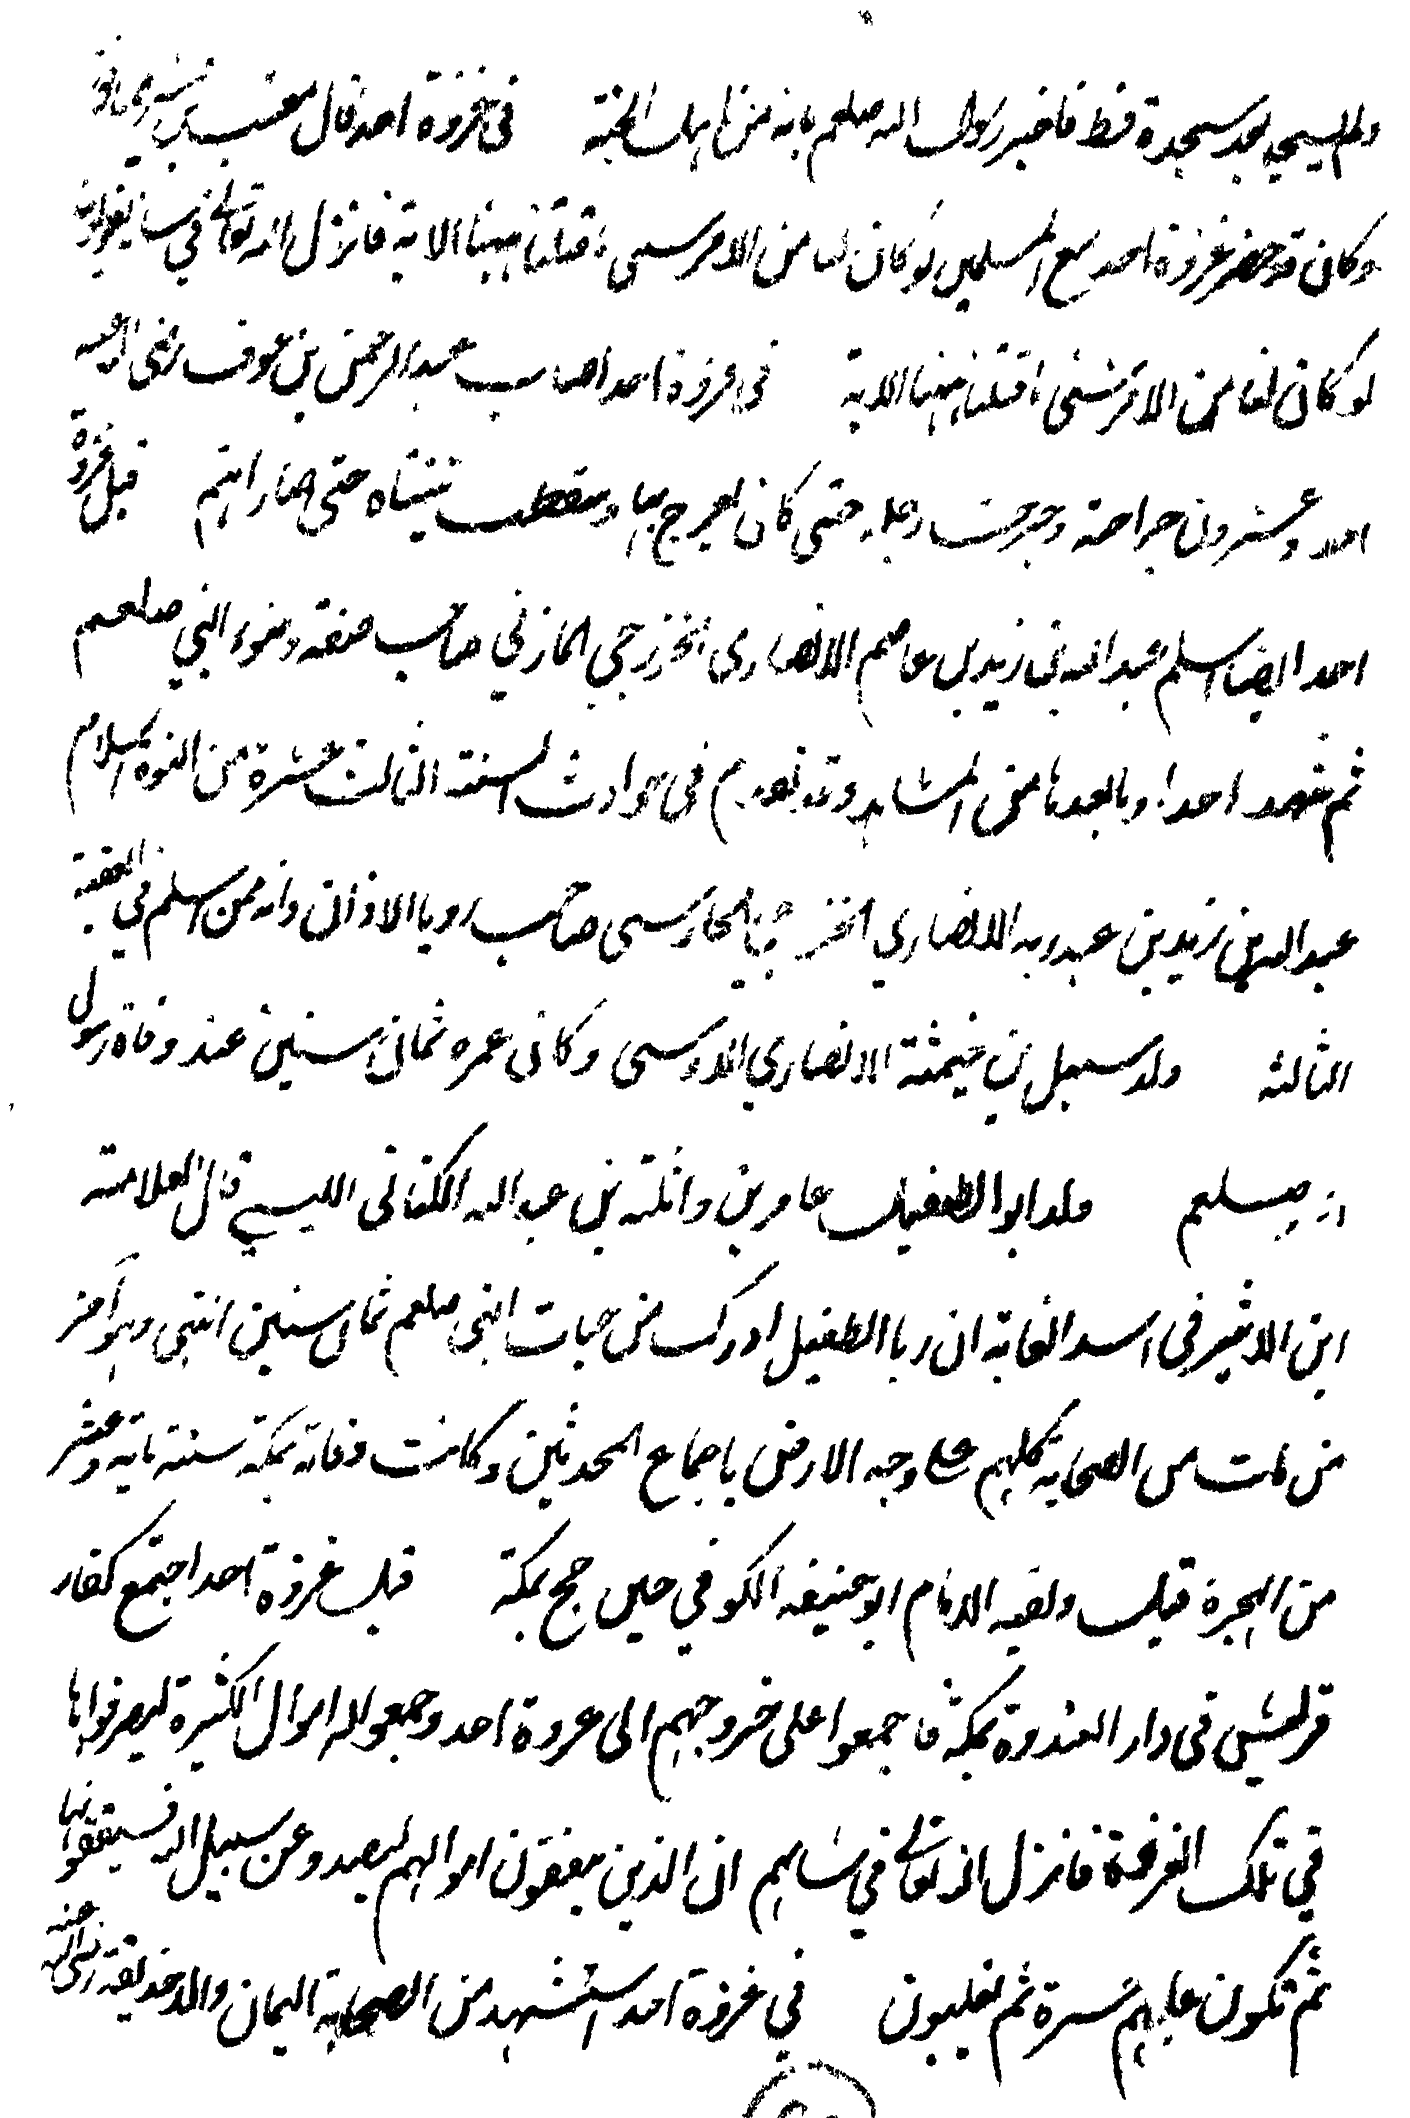 ولم يسجد بعد سجدة قط فاخبر رسول الله صلعم بانه من اهل الجنة في غزوة احد قال معتب بن قشير
وكان قد حضر غزوة احد مع المسلمين لو كان لنا من الامر شيء ما قتلنا ههنا الاية فانزل الله تعالى في شانه يقولون
لو كان لنا من الامر شئ ما قتلنا ههنا الاية في غزوة احد اصاب عبد الرحمن بن عوف رضي الله عنه
احد وعشرون جراحة وجرحت رجله حتى كان يعرج بها وسقطت ثنيتاه حتى صار اهتم قبل غزوة
احد ايضا اسلم عبد الله بن زيد بن عاصم الانصاري الخزرجي المازني صاحب صفة وضوء النبي صلعم
ثم شهد احدا وما بعدها من المشاهد وقد تقدم في حوادث السنة الثالث عشرة من النبوة اسلام
عبد الله بن زيد بن عبد ربه الانصاري الخزرجي الحارثي صاحب رويا الاذان وانه ممن اسلم في العقبة
الثالثة ولد سهل بن خيثمة الانصاري الاوسي وكان عمره ثمان سنين عند وفاة رسول
الله صلعم ولد ابو الطفيل عامر بن واثلة بن عبد الله الكناني الليثي قال العلامة
ابن الاثير في اسد الغابة ان ابا الطفيل ادرك من حيات النبي صلعم ثمان سنين انتهى وهو آخر
من مات من الصحابة كلهم على وجه الارض باجماع المحدثين وكانت وفاته بمكة سنة مائة وعشر
من الهجرة قيل ولقيه الامام ابو حنيفة الكوفي حين حج بمكة قبل غزوة احد اجتمع كفار
قريش في دار الندوة بمكة فاجمعوا على خروجهم الى غزوة احد وجمعوا له اموال الكثيرة ليصرفوها
في تلك الغزوة فانزل الله تعالى في شانهم ان الذين ينفقون اموالهم ليصدوا عن سبيل الله فسينفقونها
ثم تكون عليهم حسرة ثم يغلبون في غزوة احد استشهد من الصحابة اليمان والد حذيفة رضي الله عنه